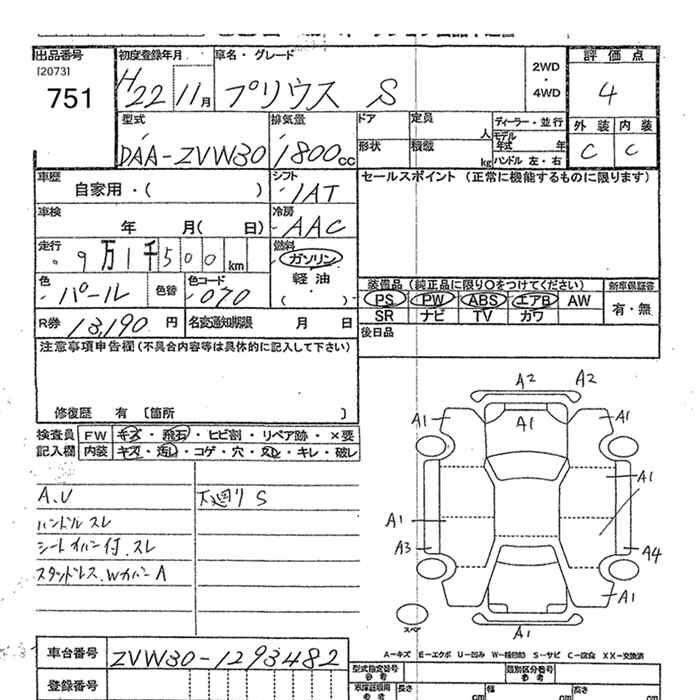 出品番号 初度登録年月 車名・グレード 2WD・4WD 評価点
[2073]
751 H22 11月 プリウス S 4
型式 排気量 ドア 定員 人 ディーラー・並行 外装 内装
DAA-ZVW30 1800cc 形状 積載 kg モデル年式 年 ハンドル 左・右 C C
車歴 自家用・( ) シフト IAT セールスポイント (正常に機能するものに限ります)
車検 年 月( 日) 冷房 AAC
走行 9万1千500km 燃料 ガソリン
軽油
( )
色 パール 色替 色コード 070
装備品 (純正品に限り○をつけてください) 新車保証書
PS PW ABS エアB AW 有・無
SR ナビ TV カワ
R券 13,190円 名変通知期限 月 日 後日品
注意事項申告欄(不具合内容等は具体的に記入して下さい)
修復歴 有 〔箇所 〕
検査員 FW キズ・飛石・ヒビ割・リペア跡・×要
記入欄 内装 キズ・汚れ・コゲ・穴・スレ・キレ・破レ
A.U 下廻りS
ハンドル スレ
シートカバー付.スレ
A2 A2
A1 A1 A1
A1
A1
A3 A4
A1
スペア A1
A-キズ E-エクボ U-凹み W-補修跡 S-サビ C-腐食 XX-交換済
車台番号 ZVW30-1293482
型式指定番号 参考 類別区分番号 参考
登録番号 長さ cm 幅 cm 高さ cm